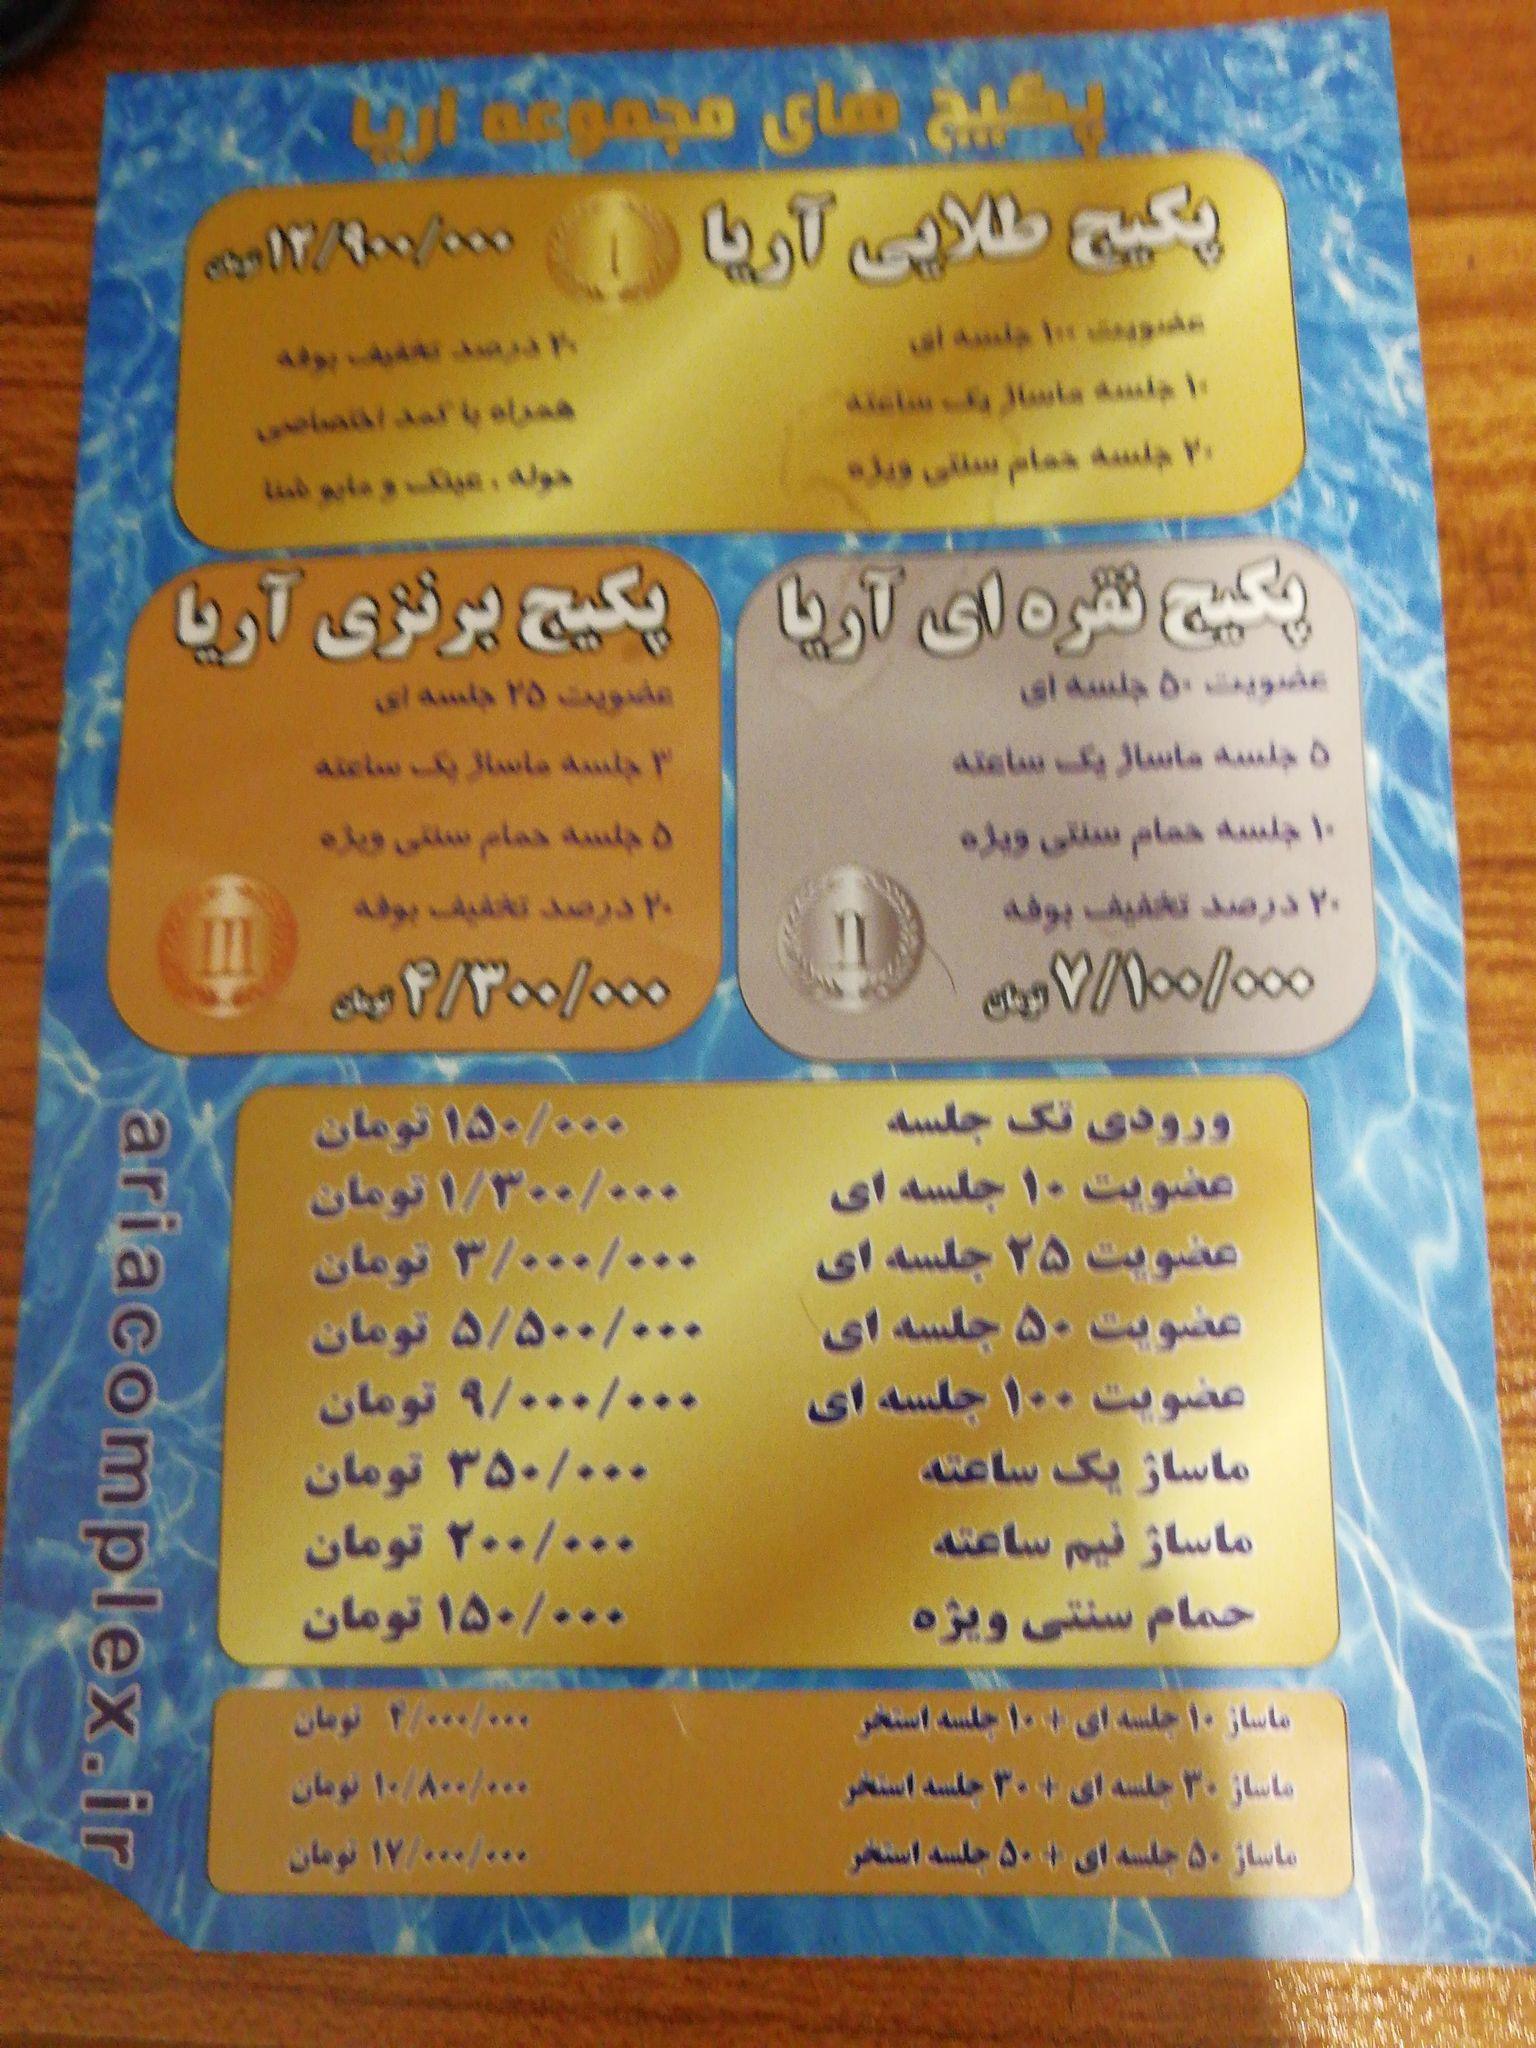 پکیج های مجموعه آریا
پکیج طلایی آریا
۱
۱۲/۹۰۰/۰۰۰ تومان
عضویت ۱۰۰ جلسه ای
۱۰ جلسه ماساژ یک ساعته
۲۰ جلسه حمام سنتی ویژه
درصد تخفیف بوفه
همراه با کمد اختصاصی
حوله ، عینک و مایو شنا
پکیج نقره ای آریا
عضویت ۵۰ جلسه ای
۵ جلسه ماساژ یک ساعته
۱۰ جلسه حمام سنتی ویژه
۲۰ درصد تخفیف بوفه
II
۷/۱۰۰/۰۰۰ تومان
پکیج برنزی آریا
عضویت ۲۵ جلسه ای
جلسه ماساژ یک ساعته
۵ جلسه حمام سنتی ویژه
۲۰ درصد تخفیف بوفه
III
۴/۳۰۰/۰۰۰ تومان
ورودی تک جلسه ۱۵۰/۰۰۰ تومان
عضویت ۱۰ جلسه ای ۱/۳۰۰/۰۰۰ تومان
عضویت ۲۵ جلسه ای ۳/۰۰۰/۰۰۰ تومان
عضویت ۵۰ جلسه ای ۵/۵۰۰/۰۰۰ تومان
عضویت ۱۰۰ جلسه ای ۹/۰۰۰/۰۰۰ تومان
ماساژ یک ساعته ۳۵۰/۰۰۰ تومان
ماساژ نیم ساعته ۲۰۰/۰۰۰ تومان
حمام سنتی ویژه ۱۵۰/۰۰۰ تومان
ماساژ ۱۰ جلسه ای + ۱۰ جلسه استخر ۴/۰۰۰/۰۰۰ تومان
ماساژ ۳۰ جلسه ای + ۳۰ جلسه استخر ۱۰/۸۰۰/۰۰۰ تومان
ماساژ ۵۰ جلسه ای + ۵۰ جلسه استخر ۱۷/۰۰۰/۰۰۰ تومان
ariacomplex.ir